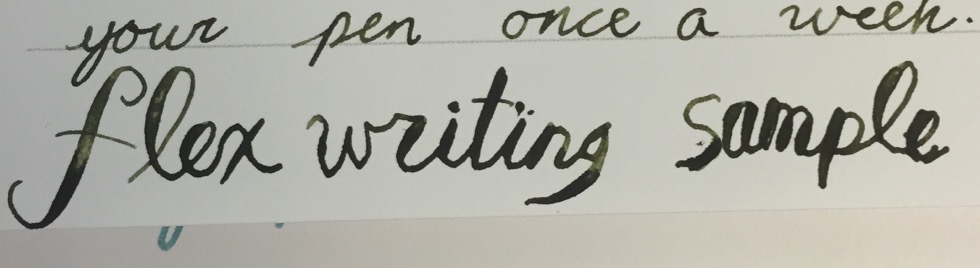 your pen once a week.
flex writing sample